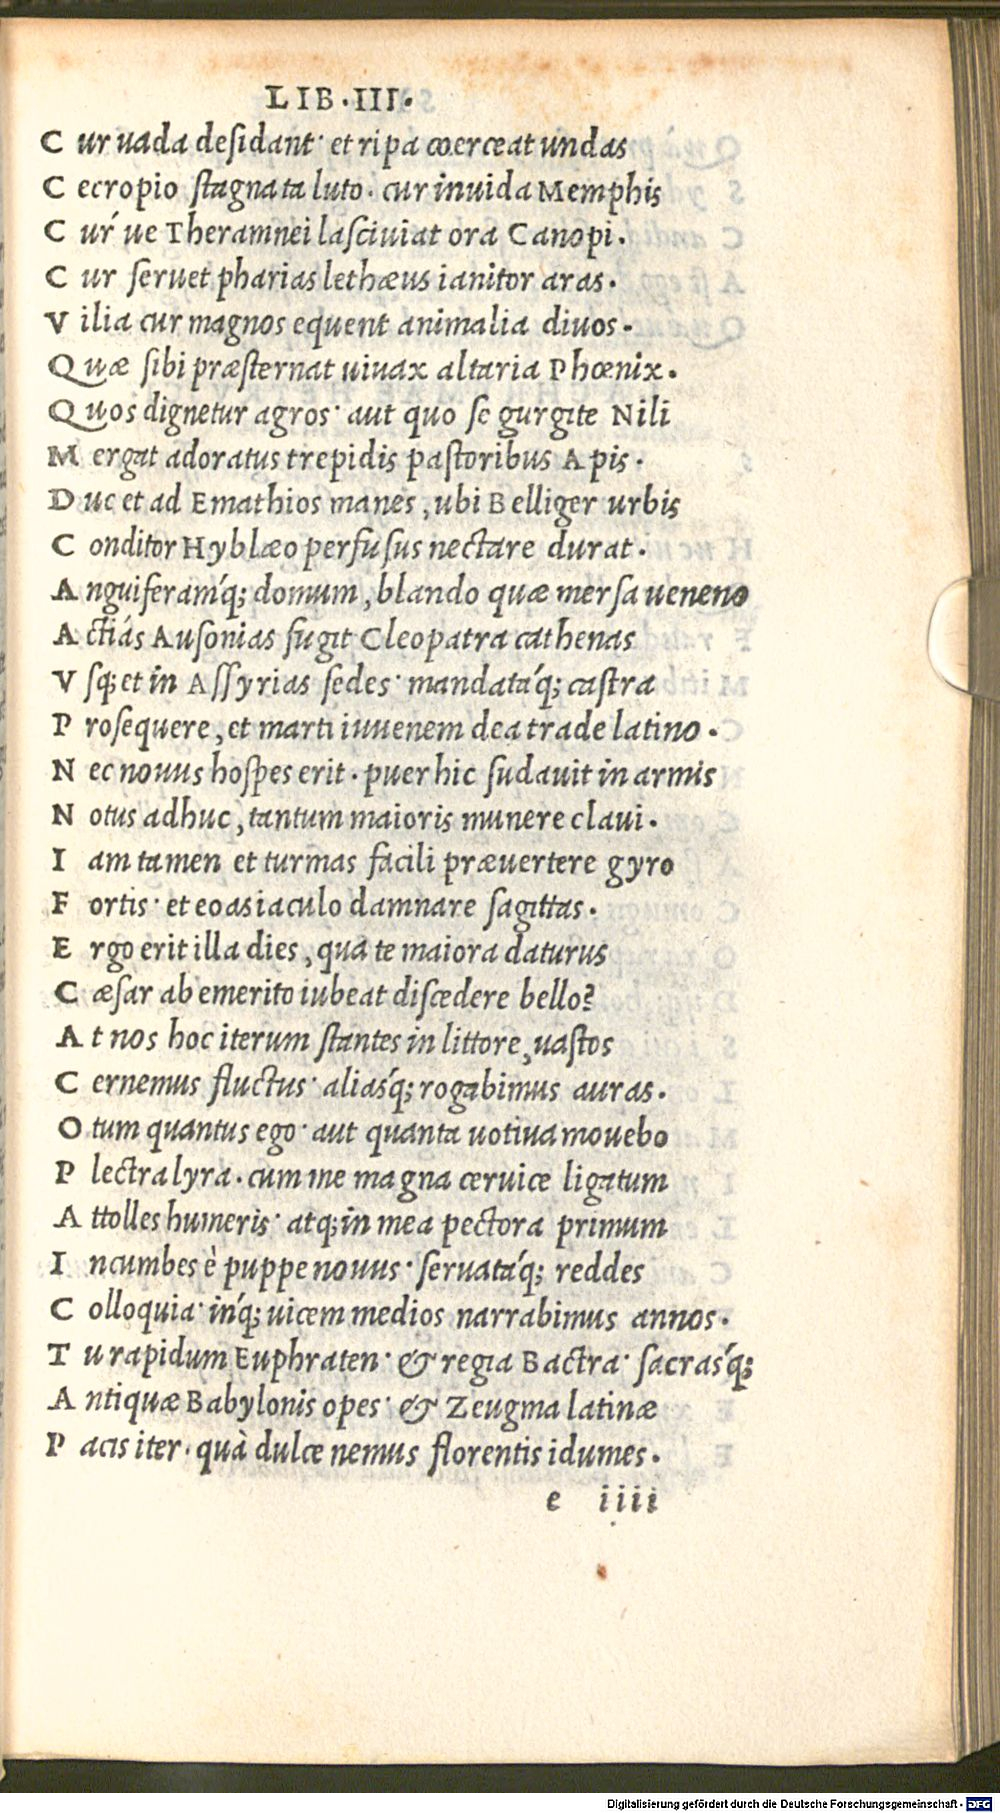 LIB.III.
C ur uada desidant· et ripa coerceat undas
C ecropio stagnata luto. cur inuida Memphis
C ur´ue Theramnei lasciuiat ora Canopi.
C ur seruet pharias lethæus ianitor aras.
V ilia cur magnos equent animalia diuos.
Q uæ sibi præsternat uiuax altaria Phœnix.
Q uos dignetur agros· aut quo se gurgite Nili
M ergat adoratus trepidis pastoribus Apis.
D uc et ad Emathios manes, ubi Belliger urbis
C onditor Hyblæo perfusus nectare durat.
A nguiferam´q; domum, blando quæ mersa ueneno
A ctiás Ausonias fugit Cleopatra cathenas
V sq; et in Assyrias sedes· mandata´q; castra
P rosequere, et marti iuuenem dea trade latino.
N ec nouus hospes erit. puer hic sudauit in armis
N otus adhuc, tantum maioris munere claui.
I am tamen et turmas facili præuertere gyro
F ortis· et eoas iaculo damnare sagittas.
E rgo erit illa dies, qua te maiora daturus
C æsar ab emerito iubeat discedere bello?
A t nos hoc iterum stantes in littore, uastos
C ernemus fluctus· alias´q; rogabimus auras.
O tum quantus ego· aut quanta uotiua mouebo
P lectra lyra. cum me magna ceruice ligatum
A ttolles humeris· atq; in mea pectora primum
I ncumbes è puppe nouus· seruata´q; reddes
C olloquia· in´q; uicem medios narrabimus annos.
T u rapidum Euphraten· & regia Bactra· sacras´q;
A ntiquæ Babylonis opes· & Zeugma latinæ
P acis iter. quà dulce nemus florentis idumes.
e iiii
Digitalisierung gefördert durch die Deutsche Forschungsgemeinschaft - DFG